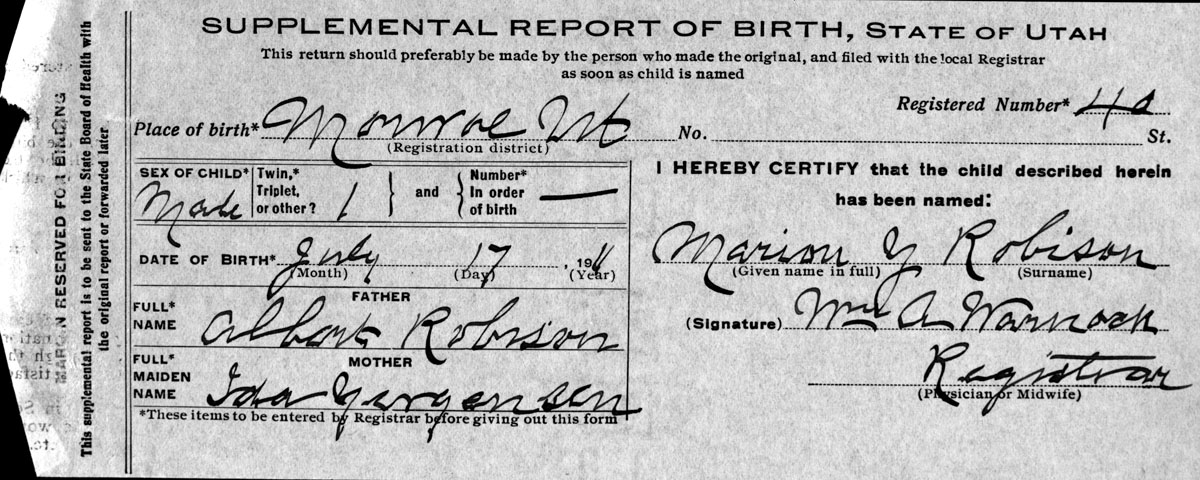 SUPPLEMENTAL REPORT OF BIRTH, STATE OF UTAH
This return should preferably be made by the person who made the original, and filed with the local Registrar
as soon as child is named
Registered Number*
Place of birth* Monroe Ut No. St.
(Registration district)
SEX OF CHILD* Male
Twin,*
Triplet,
or other? 1
and
Number*
In order
of birth —
I HEREBY CERTIFY that the child described herein
has been named:
DATE OF BIRTH* July 17, 1911
(Month) (Day) (Year)
Marion Y Robison
(Given name in full) (Surname)
FATHER
FULL*
NAME Albert Robison
(Signature) Wm A Warnock
MOTHER
FULL*
MAIDEN
NAME Ida Yergensen
Registrar
(Physician or Midwife)
*These items to be entered by Registrar before giving out this form
MARGIN RESERVED FOR BINDING
This supplemental report is to be sent to the State Board of Health with
the original report or forwarded later